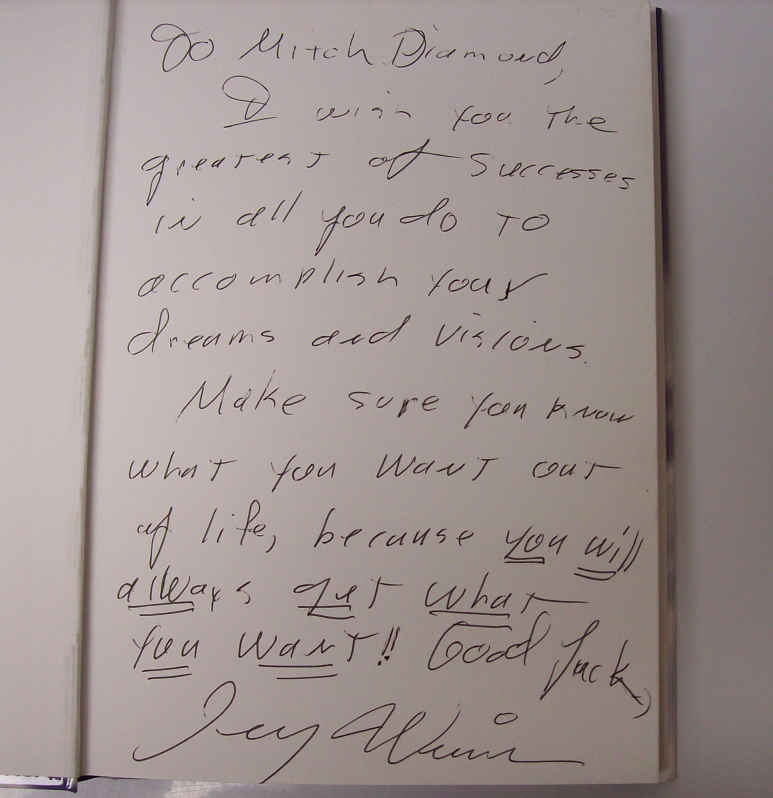 To Mitch Diamond,
I wish you the
greatest of successes
in all you do to
accomplish your
dreams and visions.
Make sure you know
what you want out
of life, because you will
allways get what
you want!! Good luck,